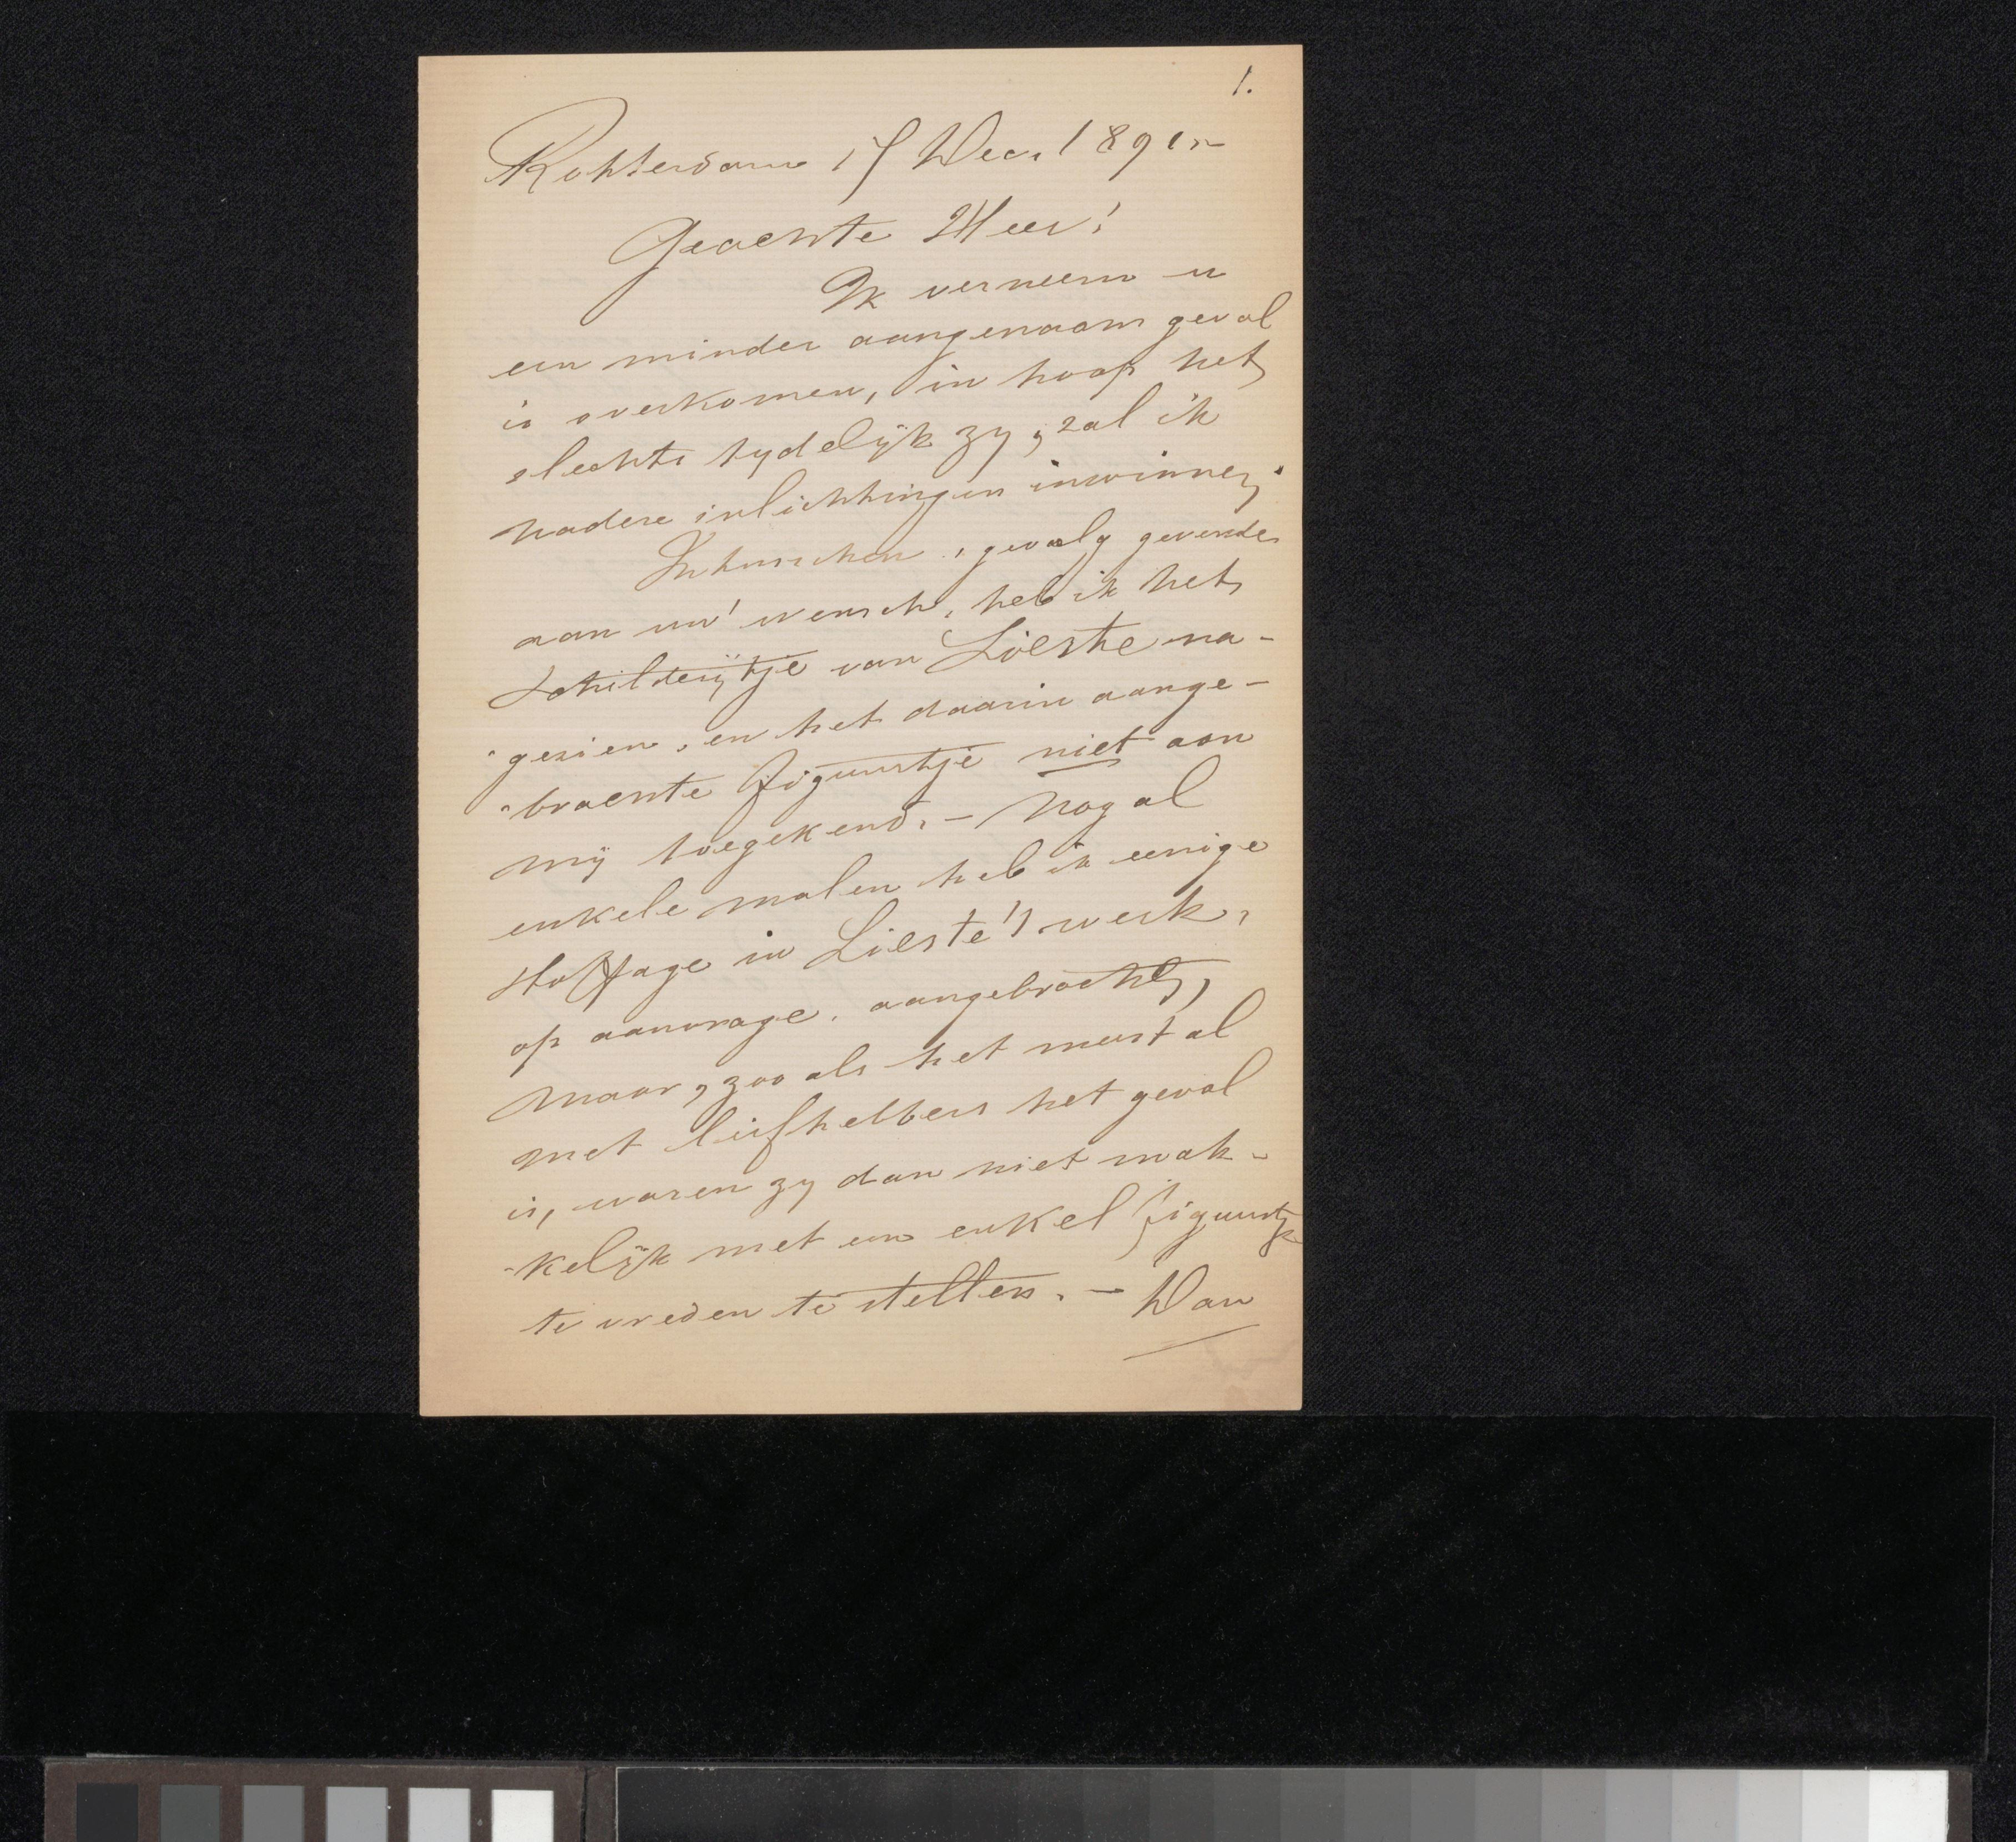 1.
Rotterdam 17 Dec. 1891
Geachte Heer!
Ik verneem u
een minder aangenaam geval
is overkomen, in hoop het
slechts tydelijk zy, zal ik
nadere inlichtingen inwinnen.
Intusschen, gevolg gevende
aan uw' wensch, heb ik het
schilderijtje van Lieste na-
gezien, en het daarin aange-
brachte figuurtje niet aan
mij toegekend. - Nog al
enkele malen heb ik eenige
stoffage in Lieste's werk,
op aanvrage, aangebracht,
maar, zoo als het meestal
met liefhebbers het geval
is, waren zy dan niet mak-
kelijk met een enkel figuurtje
te vreden te stellen. - Dan